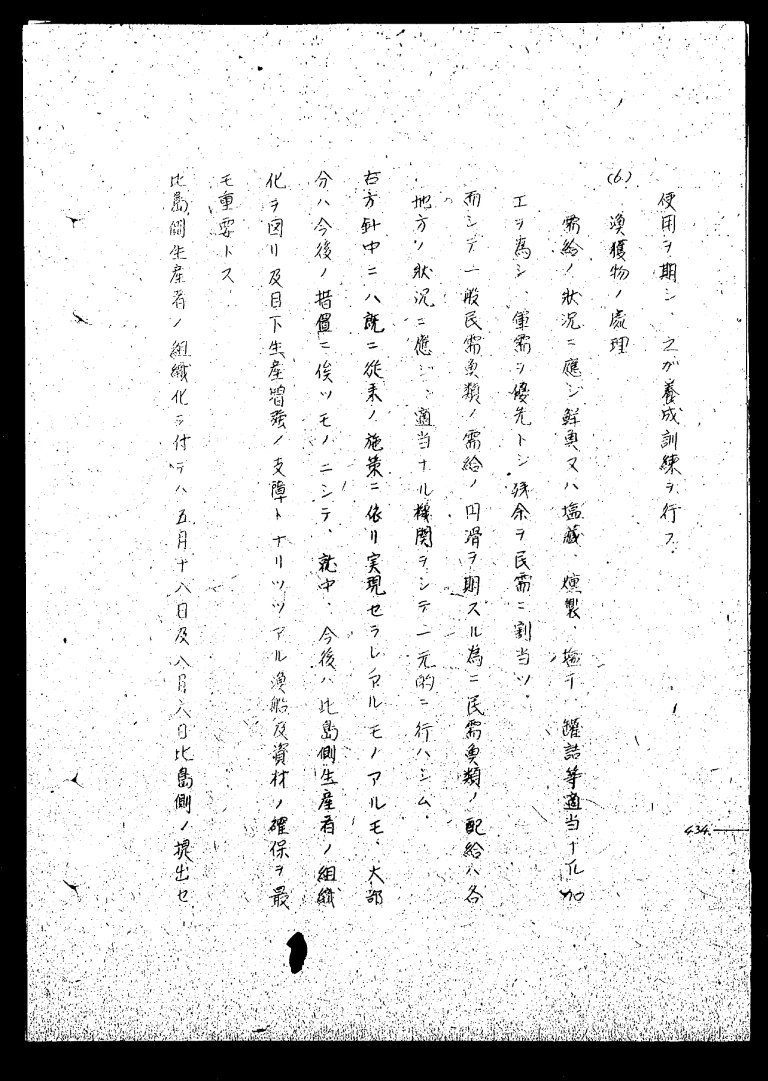 使用ヲ期シ、之ガ養成訓練ヲ行フ。
(6) 漁獲物ノ處理
需給ノ狀況ニ應ジ鮮魚又ハ塩藏、燻製、塩干、罐詰等適当ナル加
工ヲ為シ、軍需ヲ優先トシ残余ヲ民需ニ割当ツ。
而シテ一般民需魚類ノ需給ノ円滑ヲ期スル為ニ民需魚類ノ配給ハ各
地方ノ狀況ニ應ジ、適当ナル機関ヲシテ一元的ニ行ハシム。
右方針中ニハ既ニ從来ノ施策ニ依リ実現セラレアルモノアルモ、大部
分ハ今後ノ措置ニ俟ツモノニシテ、就中、今後ハ比島側生産者ノ組織
化ヲ図リ及目下生産増強ノ支障トナリツツアル漁船及資材ノ確保ヲ最
モ重要トス。
比島側生産者ノ組織化ニ付テハ五月十八日及八月六日比島側ノ提出セ
434.